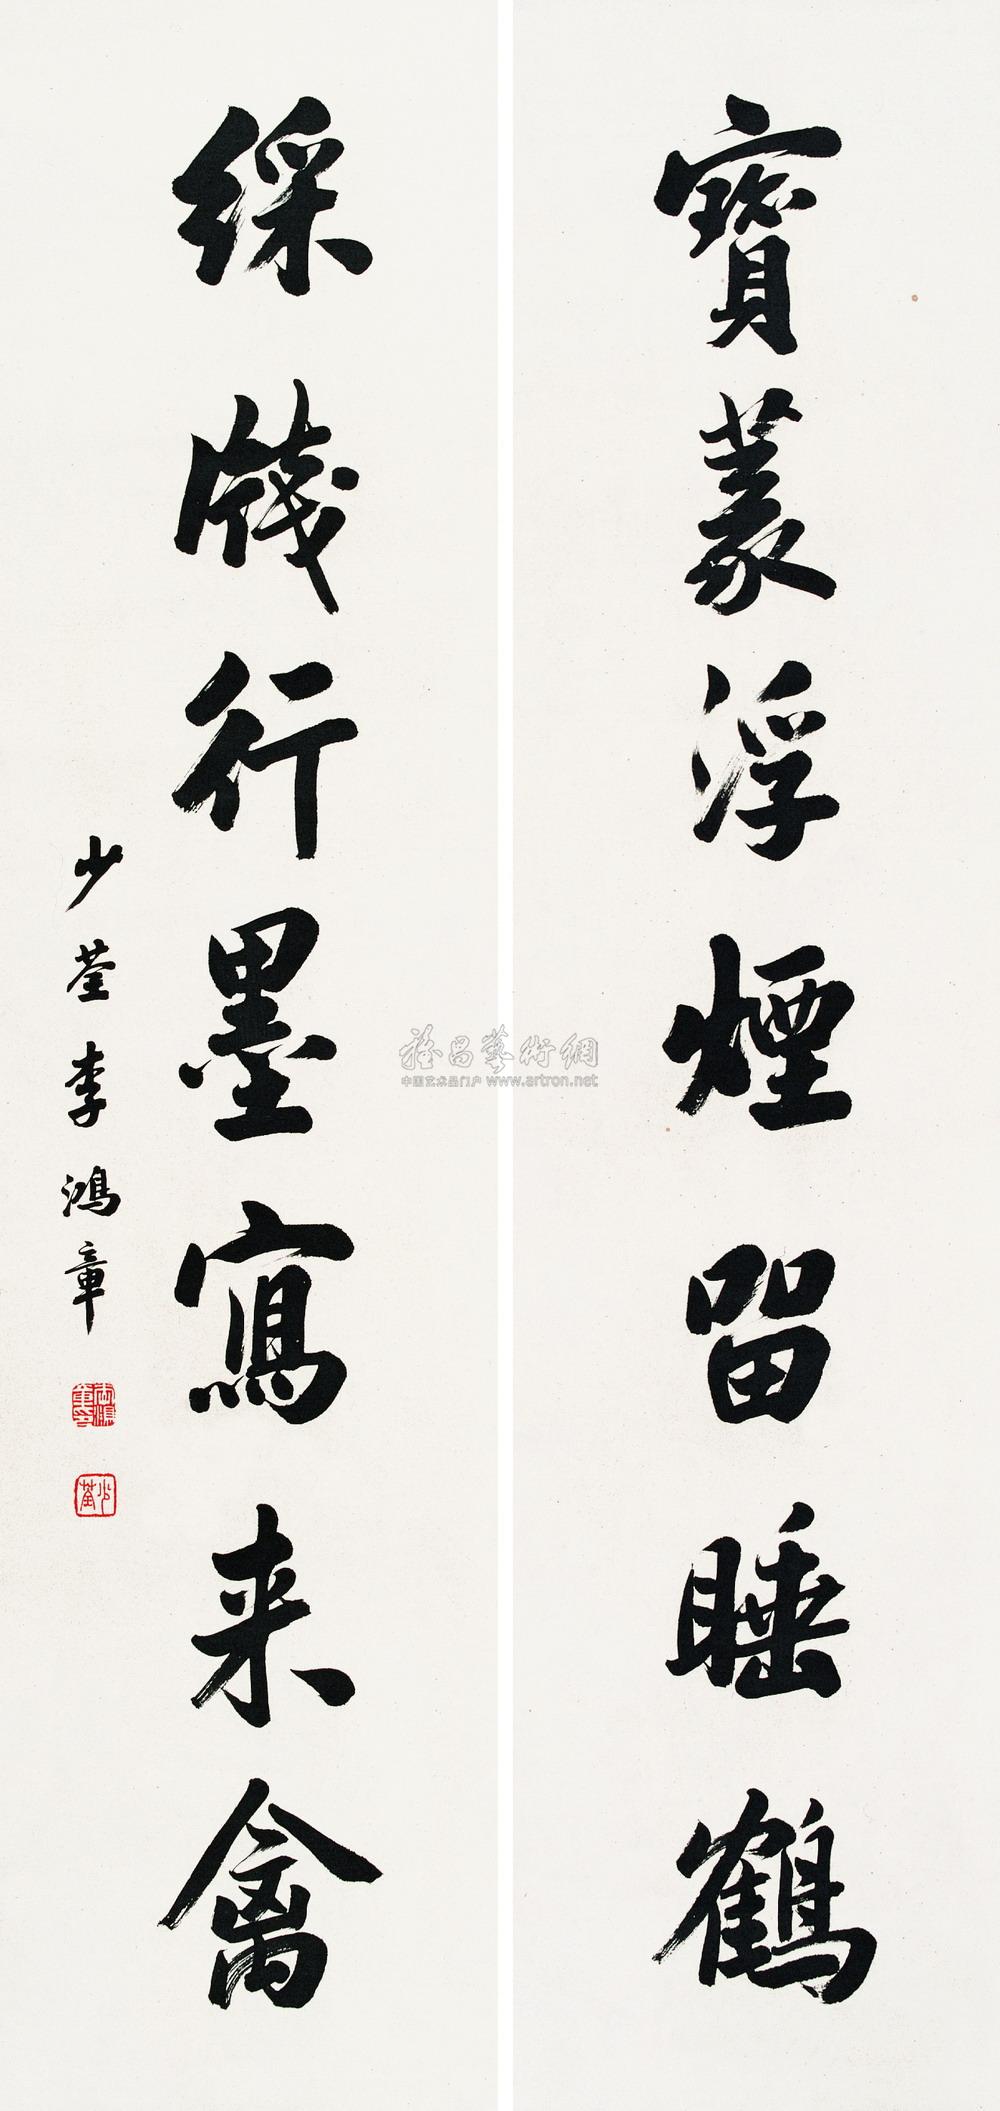 寶篆浮煙留睡鶴
綵牋行墨寫来禽
少荃李鴻章
李鴻章印
少荃
雅昌藝術網
中国艺术品门户 www.artron.net